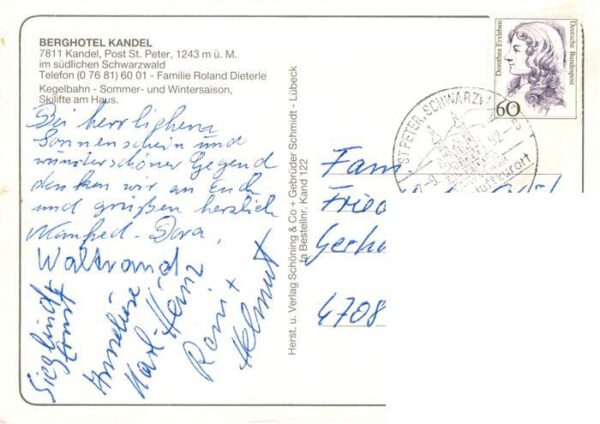 BERGHOTEL KANDEL
7811 Kandel, Post St. Peter, 1243 m ü. M.
im südlichen Schwarzwald
Telefon (0 76 81) 60 01 - Familie Roland Dieterle
Kegelbahn - Sommer- und Wintersaison,
Skilifte am Haus.
Bei herrlichem
Sonnenschein und
wunderschöner Gegend
denken wir an Euch
und grüßen herzlich
Manfred - Dora,
Waltraud
Sieglinde
Ernst
Anneliese
Karl-Heinz
Reni +
Helmut
Herst. u. Verlag Schöning & Co + Gebrüder Schmidt - Lübeck
fa Bestellnr. Kand 122
Dorothea Erxleben
Deutsche Bundespost
60
ST PETER, SCHWARZW
Fam
Fried
Gerha
4708